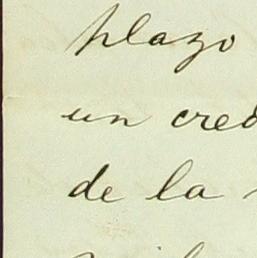 plazo
un cred
de la